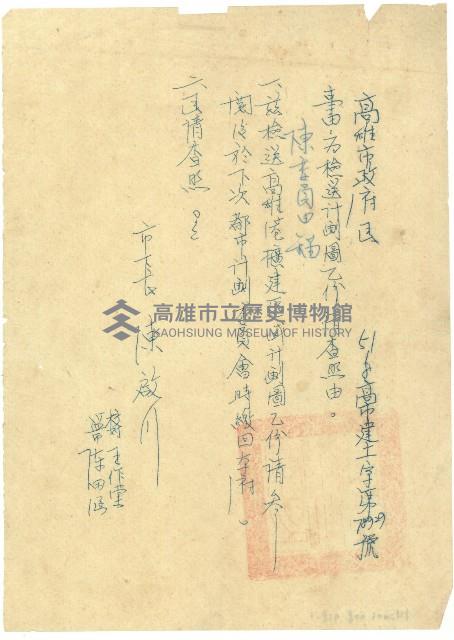 高雄市政府函
51 高市建土字第 號
事由:為檢送計劃圖乙份請查照由。
陳委員田錨
一、茲檢送高雄港擴建 計劃圖乙份請參
閱 於下次都市計劃委員會時繳回本府。
二、函請查照
市長 陳啟川
高雄市立歷史博物館
KAOHSIUNG MUSEUM OF HISTORY